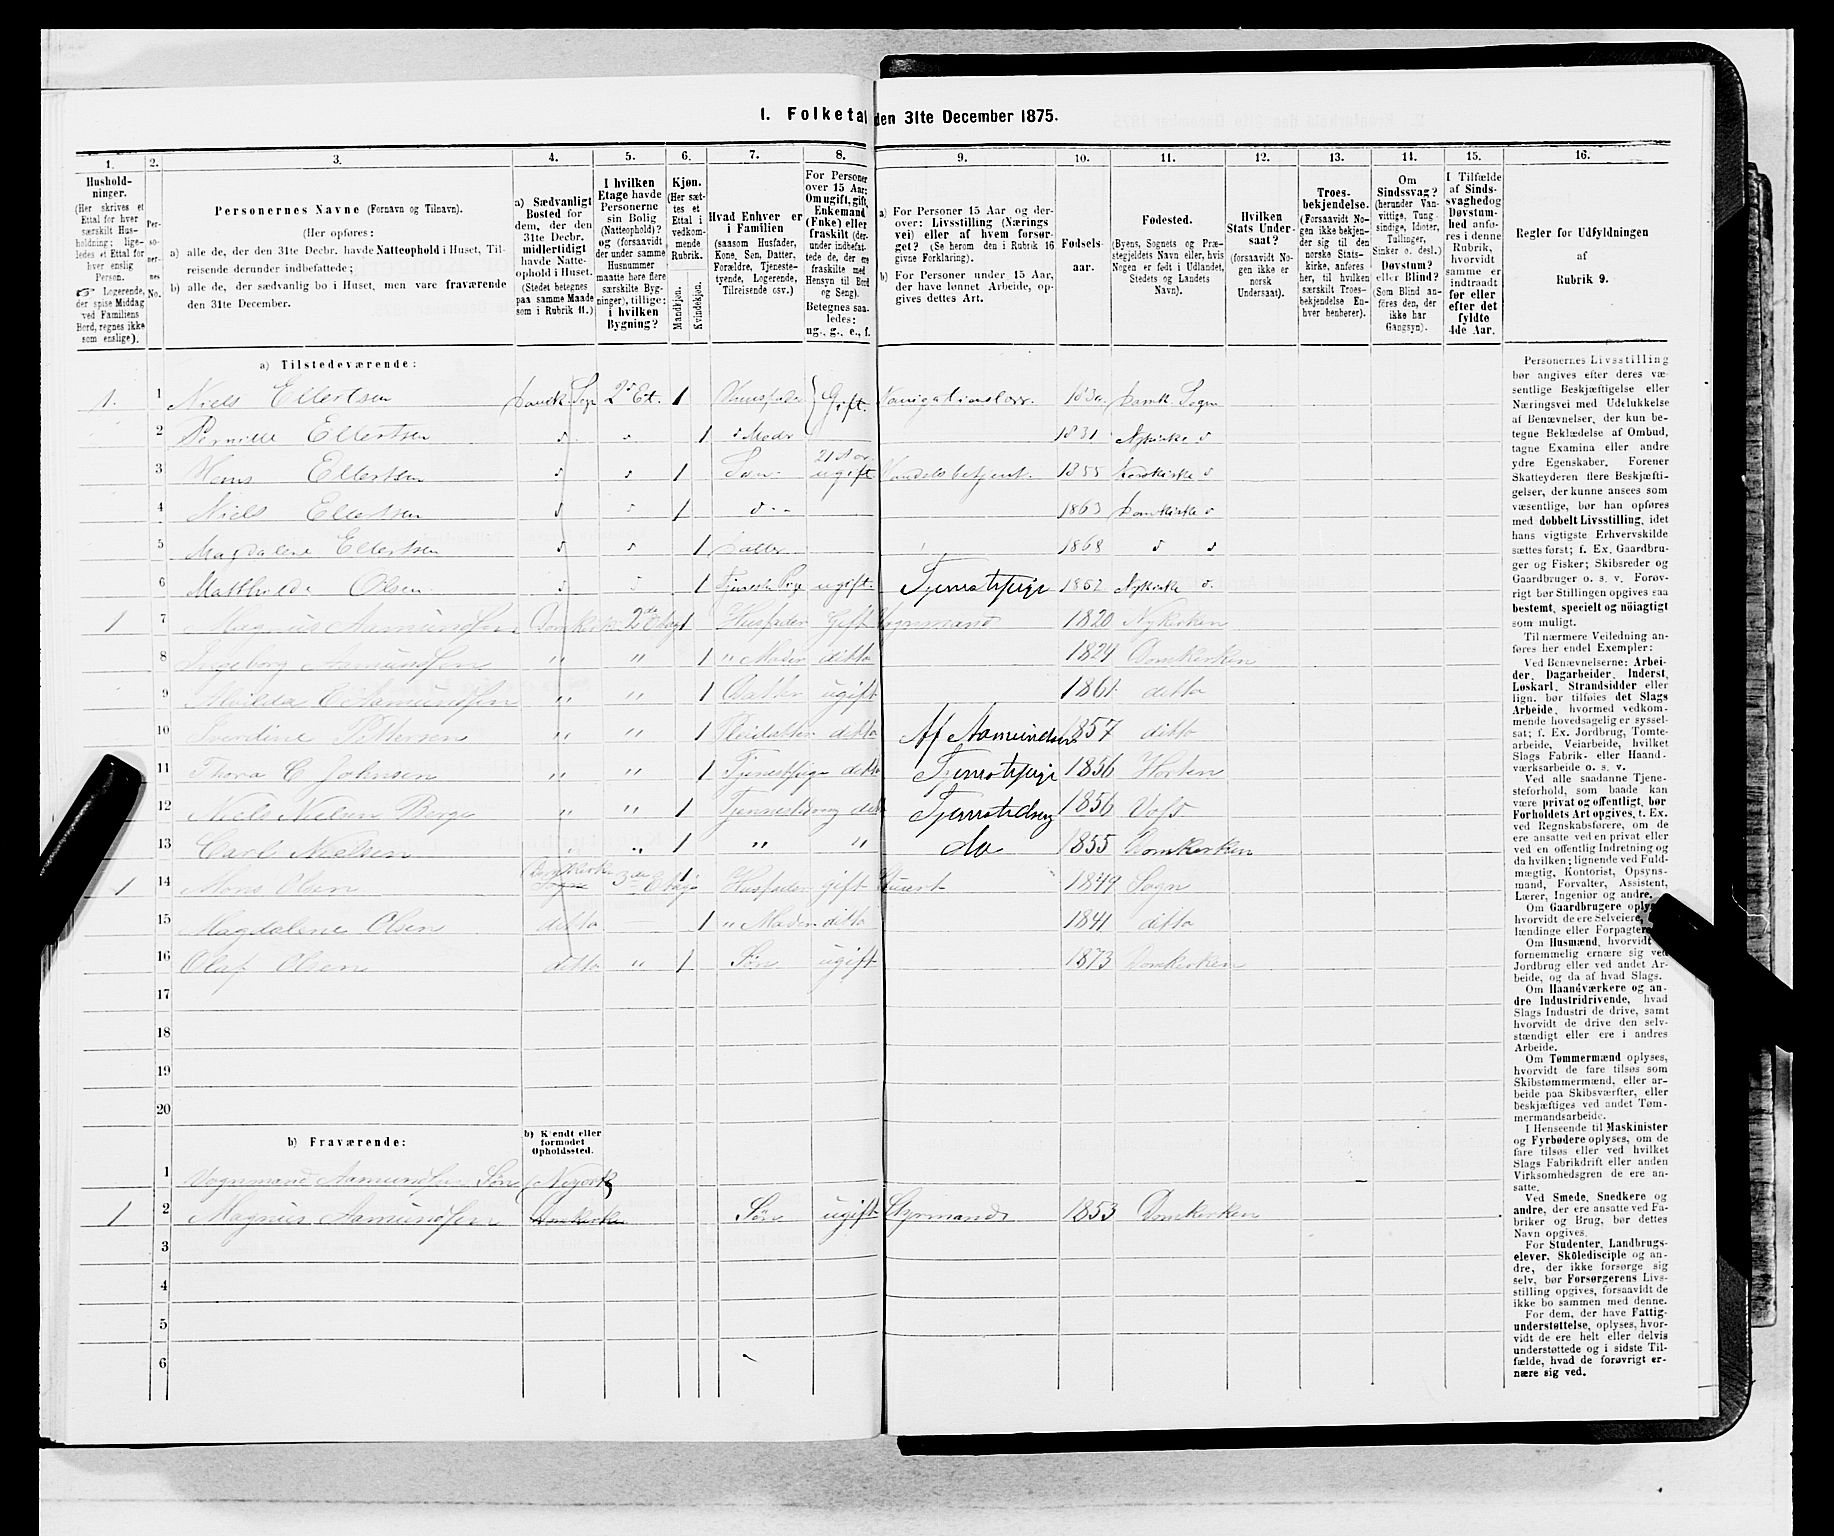 I. Folketal den 31te December 1875.
1. 2. 3. 4. 5. 6. 7. 8. 9. 10. 11. 12. 13. 14. 15. 16.
Hushold-
ninger.
(Her skrives et
Ettal for hver
særskilt Hus-
holdning; lige-
ledes et Ettal for
hver enslig
Person.
☞ Logerende,
der spise Middag
ved Familiens
Bord, regnes ikke
som enslige).
Per-
so-
ner-
nes
No.
Personernes Navne (Fornavn og Tilnavn).
(Her opføres:
a) alle de, der den 31te Decbr. havde Natteophold i Huset, Til-
reisende derunder indbefattede;
b) alle de, der sædvanlig bo i Huset, men vare fraværende
den 31te December.
a) Sædvanligt
Bosted for
dem, der den
31te Decbr.
midlertidigt
havde Natte-
ophold i Huset.
(Stedet betegnes
paa samme Maade
som i Rubrik 11.)
I hvilken
Etage havde
Personerne
sin Bolig
(Natteophold)?
og (forsaavidt
der under samme
Husnummer
maatte høre flere
særskilte Byg-
ninger), tillige:
i hvilken
Bygning?
Kjøn.
(Her sæt-
tes et
Ettal i
vedkom-
mende
Rubrik.
Mandkjøn.
Kvindekjøn.
Hvad Enhver er
i Familien
(saasom Husfader,
Kone, Søn, Datter,
Forældre, Tjeneste-
tyende, Logerende,
Tilreisende osv.)
For Personer
over 15 Aar:
Om ugift, gift,
Enkemand
(Enke) eller
fraskilt (der-
under indbefat-
tede de, der ere
fraskilte med
Hensyn til Bord
og Seng).
Betegnes saa-
ledes:
ug., g., e., f.
a) For Personer 15 Aar og der-
over: Livsstilling (Nærings
vei) eller af hvem forsør-
get? (Se herom den i Rubrik 16
givne Forklaring).
b) For Personer under 15 Aar,
der have lønnet Arbeide, op-
gives dettes Art.
Fødsels-
aar.
Fødested.
(Byens, Sognets og Præ-
stegjeldets Navn eller, hvis
Nogen er født i Udlandet,
Stedets og Landets
Navn).
Hvilken
Stats Under-
saat?
(forsaavidt No-
gen ikke er
norsk
Undersaat).
Troes-
bekjendelse.
(Forsaavidt No-
gen ikke bekjen-
der sig til den
norske Stats-
kirke, anføres
her, til hvilken
særskilt Troes-
bekjendelse En-
hver henhører).
Om
Sindssvag?
(herunder Van-
vittige, Tung-
sindige, Idioter,
Tullinger,
Sinker o. desl.)
Døvstum?
eller Blind?
(Som Blind an-
føres den, der
ikke har
Gangsyn).
I Tilfælde
af Sinds-
svaghed og
Døvstum-
hed anfø-
res i denne
Rubrik,
hvorvidt
samme er
indtraadt
før eller
efter det
fyldte
4de Aar.
Regler for Udfyldningen
af
Rubrik 9.
a) Tilstedeværende:
1. 1 Niels Ellertsen Domk. Sogn 2. Et. 1 Huusfader Gift. Navigationslær. 183 Domk. Sogn
2 Pernille Ellertsen 1 Moder 1831 Nykirke
3 Hans Ellertsen 1 Søn ugift Handelsbetjent. 1855 Korskirke
4 Niels Ellertsen 1 1863 Domkirke
5 Magdalene Ellertsen 1 Datter 1868
6 Mathilde Olsen 1 Tjeneste Pige ugift. Tjenestepige 1852 Nykirke
1 7 Magnus Aamundsen Domkirk. 2de Etage 1 Husfader Gift Vognmand 1820 Nykirken
8 Ingeborg Aamundsen " " 1 " Moder ditto 1824 Domkirken
9 Aamundsen " " 1 Datter ugift 1861 ditto
10 Severdine Pettersen " " 1 Pleiedatter ditto Af Aamundsen 1857 ditto
11 Thora C Johnsen " " 1 Tjenestpige ditto Tjenestepige 1856 Horten
12 Niels Nielsen Berge " " 1 Tjenestdreng ditto Tjenestedreng 1856 Vos
13 Carl Nielsen " " 1 " " do 1855 Domkirken
1 14 Mons Olsen Domkirke Sogn 3de Etage 1 Husfader gift 1849 Sogn
15 Magdalene Olsen ditto — 1 " Moder ditto 1841 ditto
16 Olaf Olsen ditto " 1 Søn ugift 1873 Domkirken
17
18
19
20
b) Fraværende:
b) Kjendt eller
formodet
Opholdssted.
1 Vognmand Aamundsen Søn (Neyork)
1 2 Magnus Aamundsen Domkirken Søn ugift Styrmand 1853 Domkirken
3
4
5
6
Personernes Livsstilling
bør angives efter deres væ-
sentlige Beskjæftigelse eller
Næringsvei med Udelukkelse
af Benævnelser, der kun be-
tegne Beklædelse af Ombud,
tagne Examina eller andre
ydre Egenskaber. Forener
Skatteyderen flere Beskjæfti-
gelser, der kunne ansees som
væsentlige, bør han opføres
med dobbelt Livsstilling, idet
hans vigtigste Erhvervskilde
sættes først; f. Ex. Gaardbru-
ger og Fisker; Skibsreder og
Gaardbruger o. s. v. Forøv-
rigt bør Stillingen opgives saa
bestemt, specielt og nøiagtigt
som muligt.
Til nærmere Veiledning an-
føres her endel Exempler:
Ved Benævnelserne: Arbei-
der, Dagarbeider, Inderst,
Løskarl, Strandsidder eller
lign. bør tilføies det Slags
Arbeide, hvormed vedkom-
mende hovedsagelig er syssel-
sat; f. Ex. Jordbrug, Tomte-
arbeide, Veiarbeide, hvilket
Slags Fabrik- eller Haand-
værksarbeide o. s. v.
Ved alle saadanne Tjene-
steforhold, som baade kan
være privat og offentligt, bør
Forholdets Art opgives, t. Ex.
ved Regnskabsførere, om de
ere ansatte ved en privat eller
ved en offentlig Indretning og
da hvilken; lignende ved Fuld-
mægtig, Kontorist, Opsyns-
mand, Forvalter, Assistent,
Lærer, Ingeniør og andre.
Om Gaardbrugere oplyses,
hvorvidt de ere Selveiere,
lændinge eller Forpagtere.
Om Husmænd, hvorvidt
fornemmelig ernære sig ved
Jordbrug eller ved andet Ar-
beide, og da af hvad Slags.
Om Haandværkere og an-
dre Industridrivende, hvad
Slags Industri de drive, samt
hvorvidt de drive den selv-
stændigt eller ere i andres
Arbeide.
Om Tømmermænd oplyses,
hvorvidt de fare tilsøs som
Skibstømmermænd, eller ar-
beide paa Skibsværfter, eller
beskjæftiges ved andet Tøm-
mermandsarbeide.
I Henseende til Maskinister
og Fyrbødere oplyses, om de
fare tilsøs eller ved hvilket
Slags Fabrikdrift eller anden
Virksomhedsgren de ere an-
satte.
Ved Smede, Snedkere og
andre, der ere ansatte ved Fa-
briker og Brug, bør dettes
Navn opgives.
For Studenter, Landbrugs-
elever, Skoledisciple og an-
dre, der ikke forsørge sig
selv, bør Forsørgerens Livs-
stilling opgives, forsaavidt de
ikke bo sammen med denne.
For dem, der have Fattig-
understøttelse, oplyses, hvor-
vidt de ere helt eller delvis
understøttede og i sidste Til-
fælde, hvad de forøvrigt er-
nære sig ved.